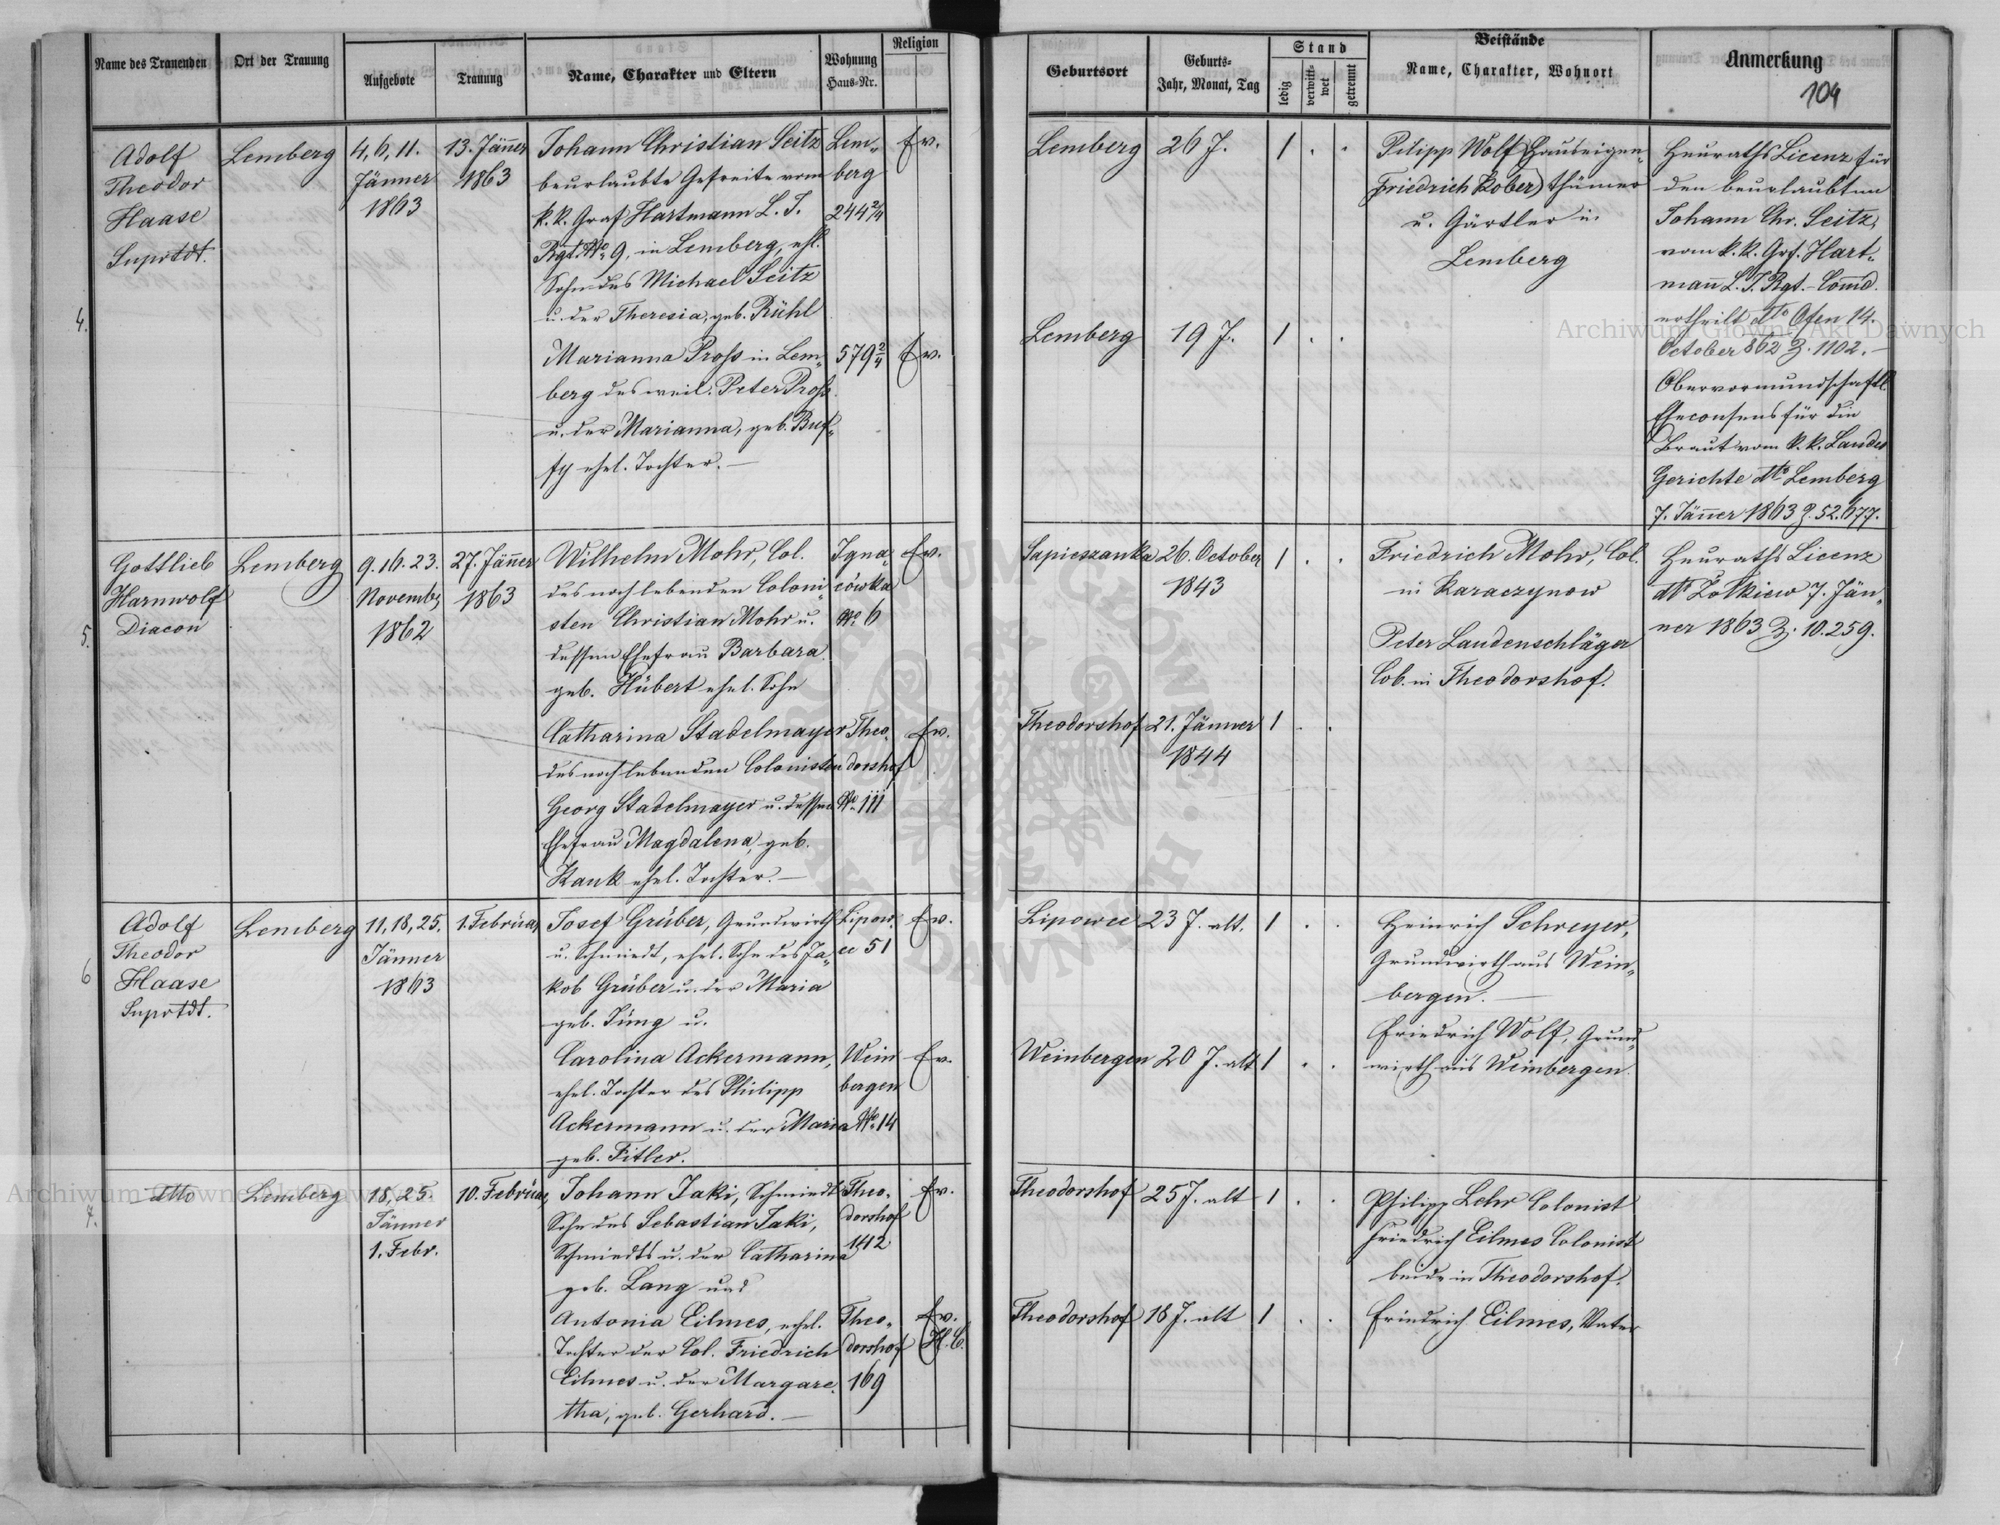 Name des Trauenden
Ort der Trauung
Aufgebote
Trauung
Name, Charakter und Eltern
Wohnung
Haus-Nr.
Religion
Geburtsort
Geburts-
Jahr, Monat, Tag
Stand
ledig
verwitt-
wet
getrennt
Beistände
Name, Charakter, Wohnort
Anmerkung
104
4.
Adolf
Theodor
Haase
Suprtdt.
Lemberg
4, 6, 11.
Jänner
1863
13. Jänner
1863
Johann Christian Seitz
beurlaubte Gefreite vom
k. k. Graf Hartmann L. I.
Rgt. No 9, in Lemberg, ehl.
Sohn des Michael Seitz
u. der Theresia, geb. Rühl
Lem-
berg
244 2/4
Ev.
Marianna Pross in Lem-
berg des weil. Peter Pross
u. der Marianna, geb. Buf-
fy ehel. Tochter. —
579 2/4
Ev.
Lemberg
26 J.
1 . .
Lemberg
19 J.
1 . .
Pilipp Wolf Hauseigen-
Friedrich Kober) thümer
u. Gärtler in
Lemberg
Heuraths Licenz für
den beurlaubten
Johann Chr. Seitz,
vom k. k. Grf. Hart-
mann L. I. Rgt. - Comd.
ertheilt dto Ofen 14.
October 862 Z. 1102. —
Obervormundschaftl.
Eheconsens für die
Braut vom k. k. Landes
Gerichte dto Lemberg
7. Jänner 1863 Z. 52.677.
5.
Gottlieb
Harnwolf
Diacon
Lemberg
9. 16. 23.
Novemb.
1862
27. Jänner
1863
Wilhelm Mohr, Col.
des noch lebenden Coloni-
sten Christian Mohr u.
dessen Ehefrau Barbara
geb. Hübert ehel. Sohn
Igna-
cówka
No 6
Ev.
Catharina Stadelmayer
des noch lebenden Colonisten
Georg Stadelmayer u. dessen
Ehefrau Magdalena, geb.
Kauk ehel. Tochter. —
Theo-
dorshof
No. 111
Ev.
Sapieszanka
26. October
1843
1 . .
Theodorshof
21. Jänner
1844
1 . .
Friedrich Mohr, Col.
in Karaczynow
Peter Laudenschläger
Col. in Theodorshof.
Heuraths Licenz
dto Zołkiew 7. Jän-
ner 1863 Z. 10.259.
6
Adolf
Theodor
Haase
Suprtdt.
Lemberg
11, 18, 25.
Jänner
1863
1. Februar
Josef Grüber, Grundwirth
u. Schmiedt, ehel. Sohn des Ja-
kob Grüber u. der Maria
geb. Jüng u.
Lipow-
ce 51
Ev.
Carolina Ackermann,
ehel. Tochter des Philipp
Ackermann u. der Maria
geb. Fitler.
Wein
bergen
No. 14
Ev.
Lipowce
23 J. alt.
1 . .
Weinbergen
20 J. alt
1 . .
Heinrich Schreyer,
Grundwirth aus Wein-
bergen. —
Friedrich Wolf, Grund-
wirth aus Weinbergen.
7.
dtto
Lemberg
18, 25.
Jänner
1. Febr.
10. Februar
Johann Jaki, Schmiedt
Sohn des Sebastian Jaki,
Schmiedts u. der Catharina
geb. Lang und
Theo-
dorshof
142
Ev.
Antonia Eilmes, ehel.
Tochter des Col. Friedrich
Eilmes u. der Margare-
tha, geb. Gerhard. —
Theo-
dorshof
169
Ev.
H. C.
Theodorshof
25 J. alt
1 . .
Theodorshof
18 J. alt
1 . .
Philipp Lehr Colonist
Friedrich Eilmes Colonist
beide in Theodorshof.
Friedrich Eilmes, Vater
Archiwum Główne Akt Dawnych
Archiwum Główne Akt Dawnych